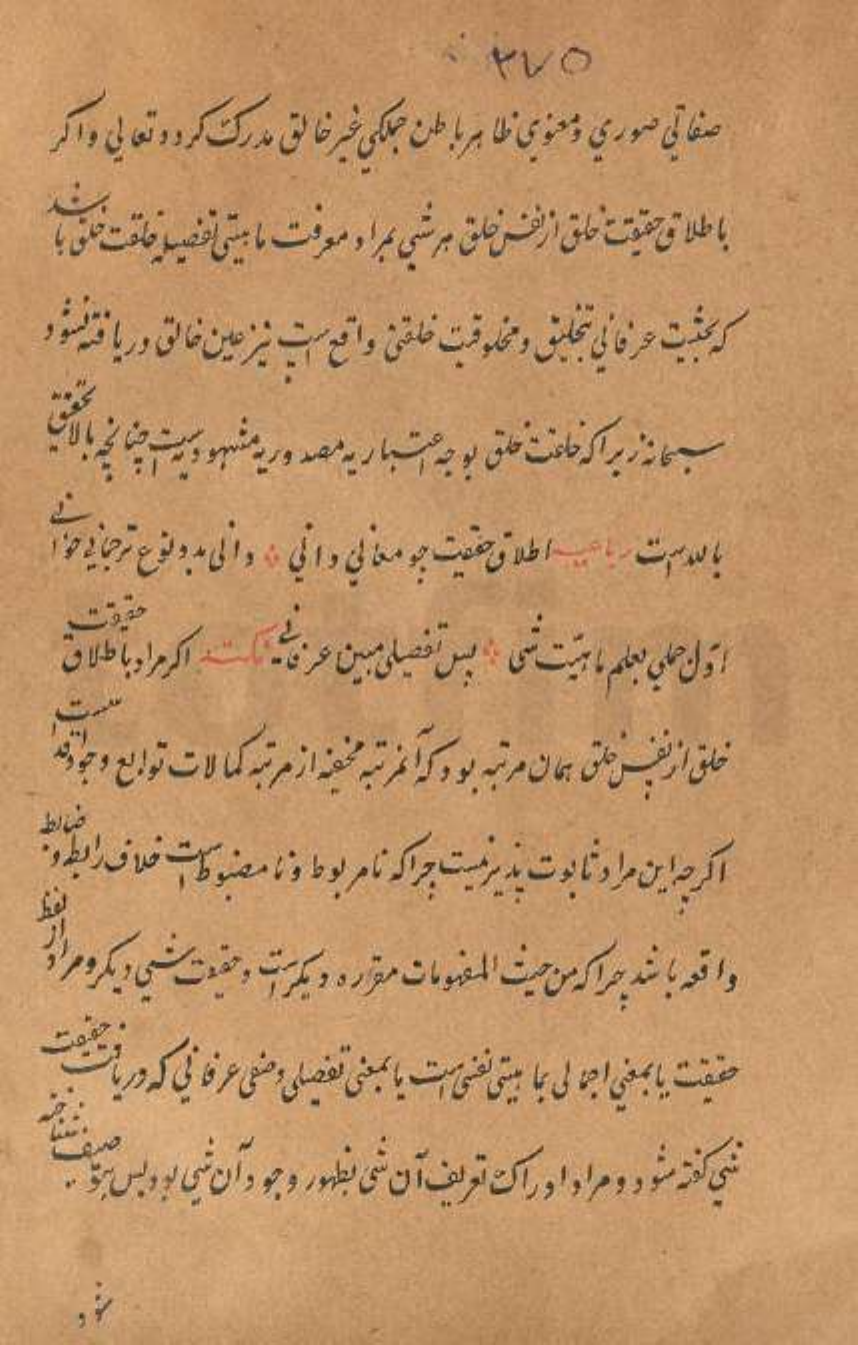 ۳۷۵
صفاتي صوري ومعنوي ظاهر باطن جملكي غير خالق مدرك كردد تعالي واكر
باطلاق حقيقت خلق از نفس خلق هر شي بمراد معرفت ماهيتي تفصيليه خلقت خلق باشد
كه بحثيت عرفاني تخليق ومخلوقيت خلقتى واقع است نيز عين خالق دريافته نشود
سبحانه زيراكه خلقت خلق بوجه اعتباريه مصدوريه مشهوديست چنانچه بالا تحقيق
بالله است رباعيه اطلاق حقيقت جو معاني داني ⁘ داني بدو نوع ترجماني خواني
اول جملي بعلم ماهيت شي ⁘ پس تفصيلي مبين عرفاني نكته اكر مراد باطلاق حقيقت
خلق از نفس خلق همان مرتبه بود كه آنمرتبه مخفيه از مرتبه كمالات توابع وجود است
اكرچه اين مراد ثابوت پذير نيست چراكه نامربوط ونامضبوط است خلاف رابط وضابط
واقعه باشد چراكه من حيث المفهومات مقرره ديكر است وحقيقت شي ديكر ومراد از لفظ
حقيقت يا بمعني اجمالي بماهيتي نفسي است يا بمعني تفصيلي وصفي عرفاني كه دريافت حقيقت
شي كفته شود ومراد ادراك تعريف آن شي بظهور وجود آن شي بود پس شناخته
شود